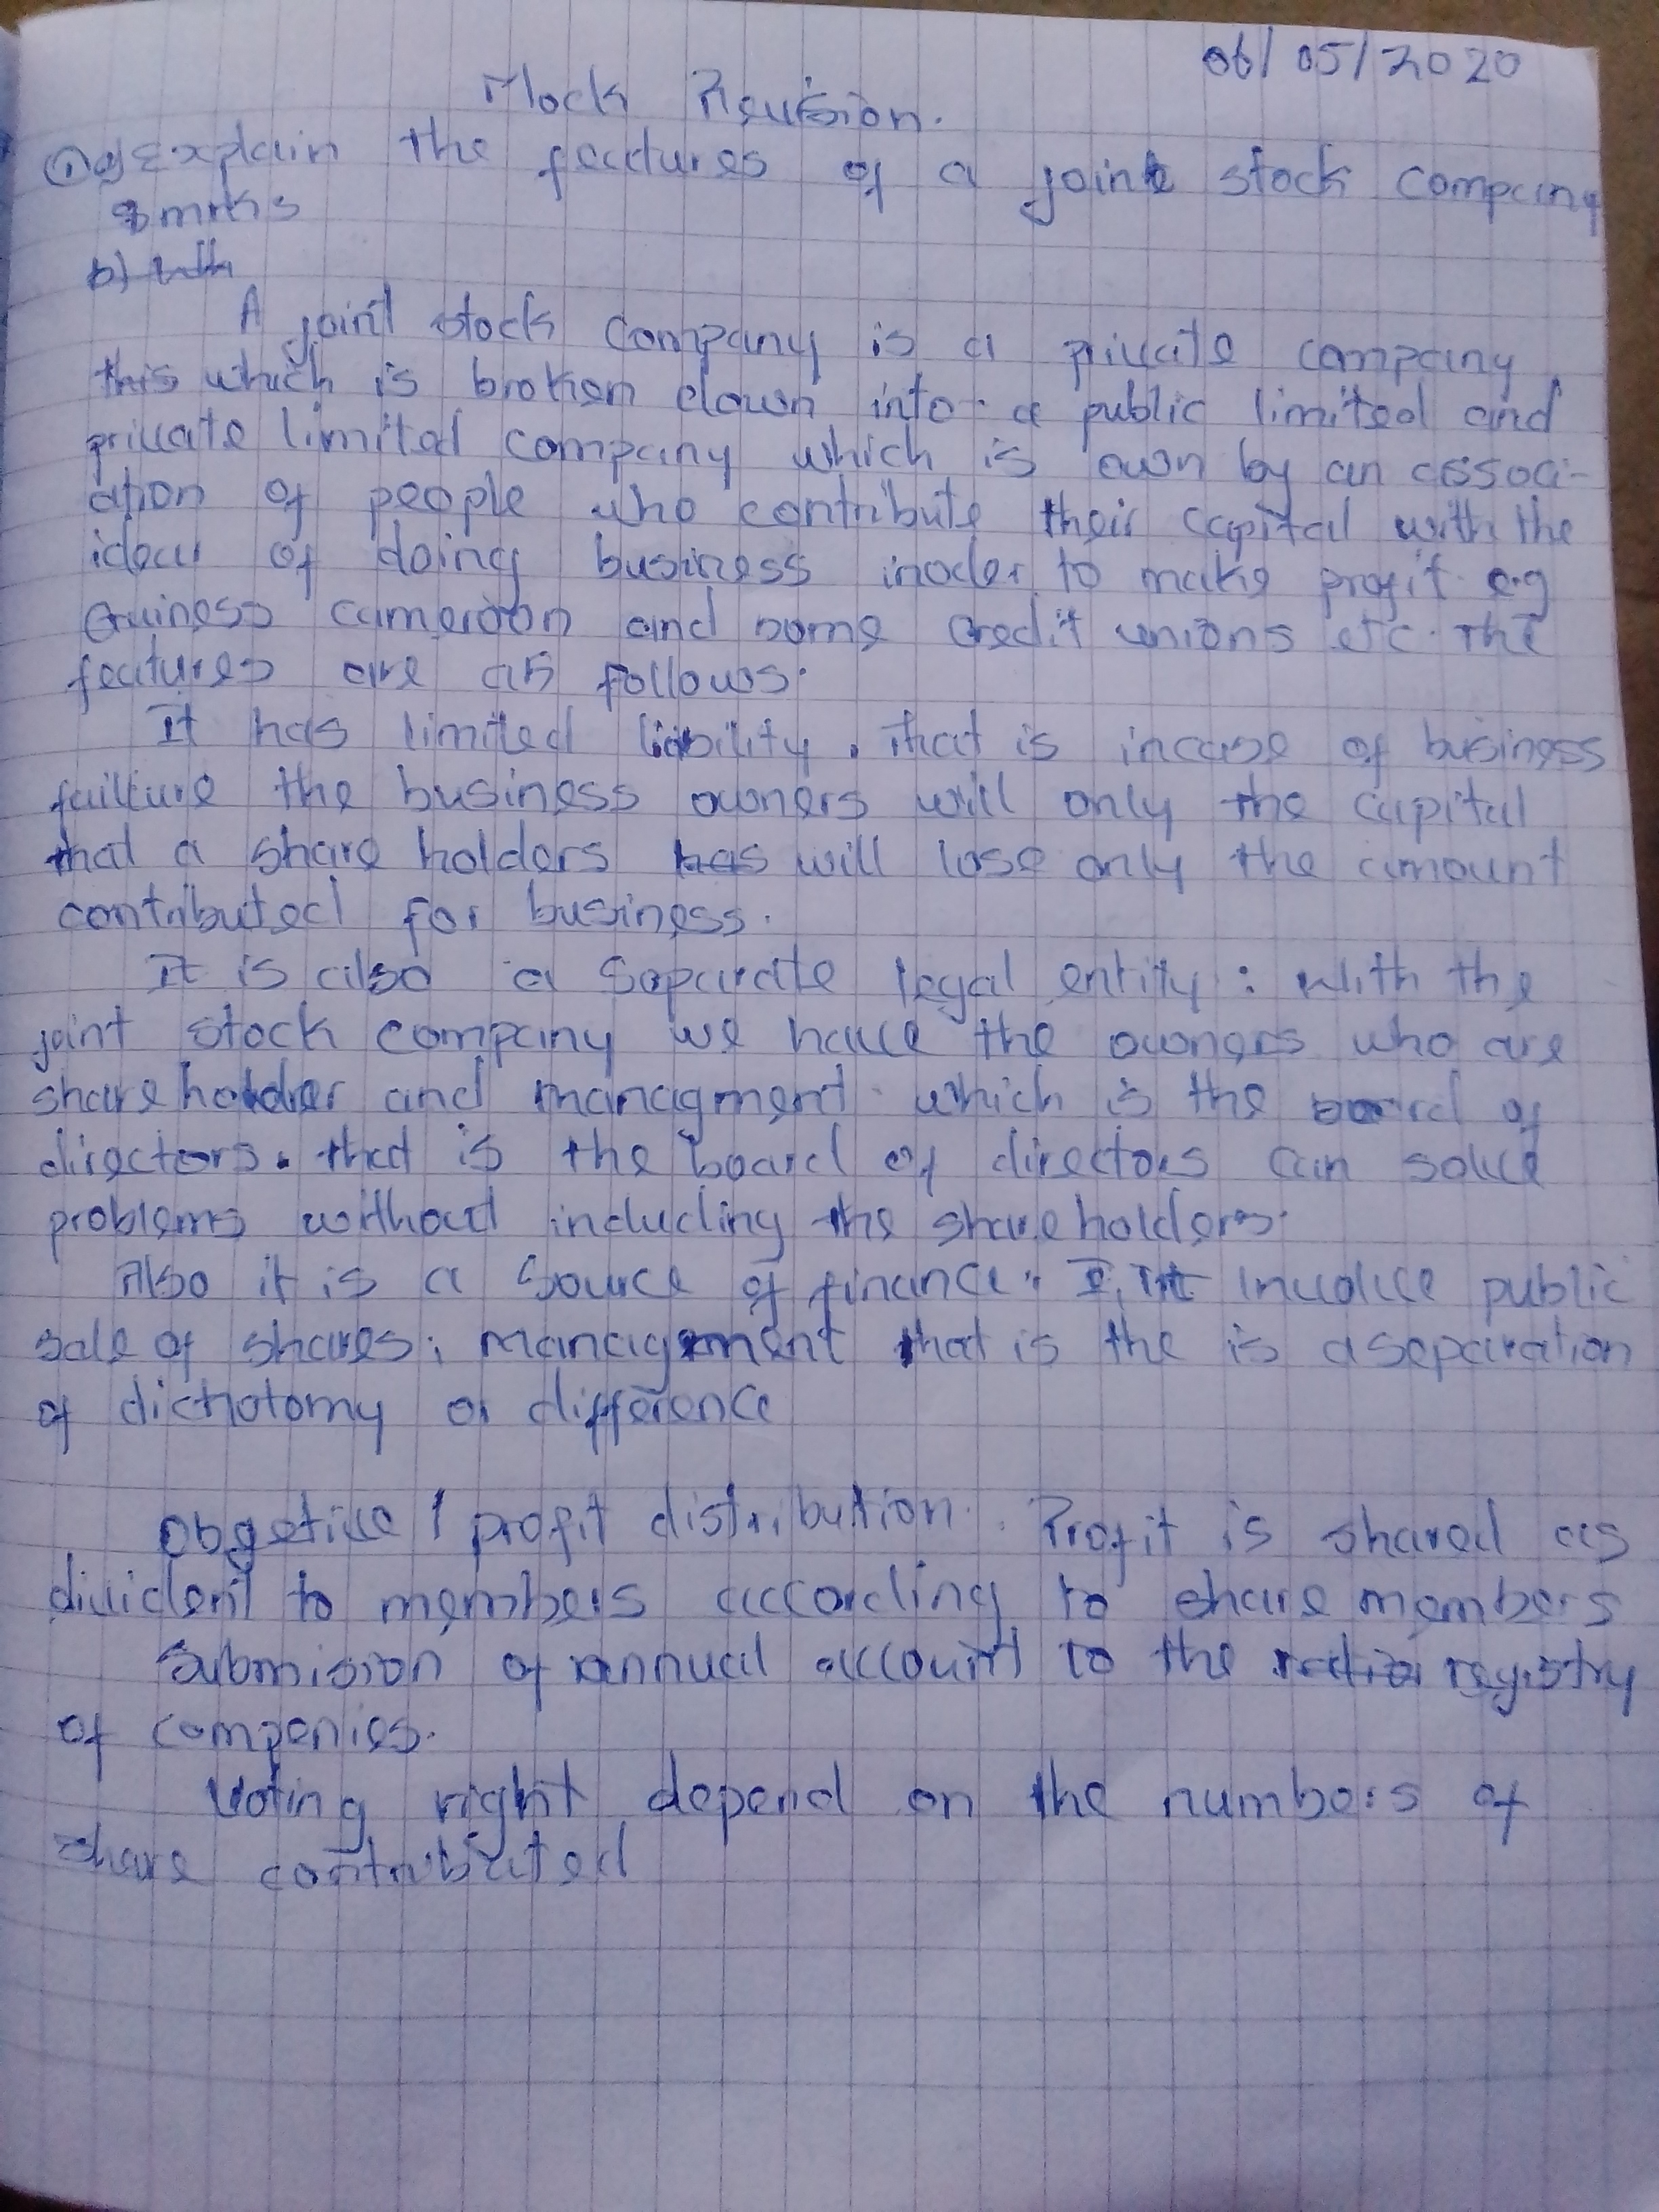 06/05/2020
Mock Revision.
1 a) Explain the features of a joint stock company
8 mrks
b)
A joint stock company is a private company
this which is broken down into a public limited and
private limited company which is own by an associ-
ation of people who contribute their capital with the
idear of doing business inoder to make profit e.g
Guiness cameroon and some credit unions etc. The
features are as follows.
It has limited liability. That is incase of business
failture the business owners will only the capital
that a share holders has will lose only the amount
contributed for business.
It is also a Seperate legal entity: with the
joint stock company we have the owners who are
shareholder and managment which is the board of
directors. that is the board of directors can solve
problems without including the share holders.
Also it is a Source of finance. It Involve public
sale of shares; management that is the is a separation
of dichotomy or difference
Obgetive / profit distribution. Profit is shared as
divident to members according to share members
Submision of annual account to the registry
of companies.
Voting right depend on the numbers of
share contributed